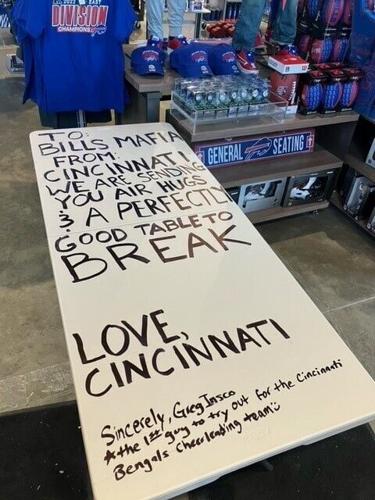 DIVISION
CHAMPIONS
GENERAL SEATING
TO:
BILLS MAFIA
FROM:
CINCINNATI
WE ARE SENDING
YOU AIR HUGS
& A PERFECTLY
GOOD TABLE TO
BREAK
LOVE,
CINCINNATI
Sincerely, Greg Insco
*the 1st guy to try out for the Cincinnati
Bengals Cheerleading team:)